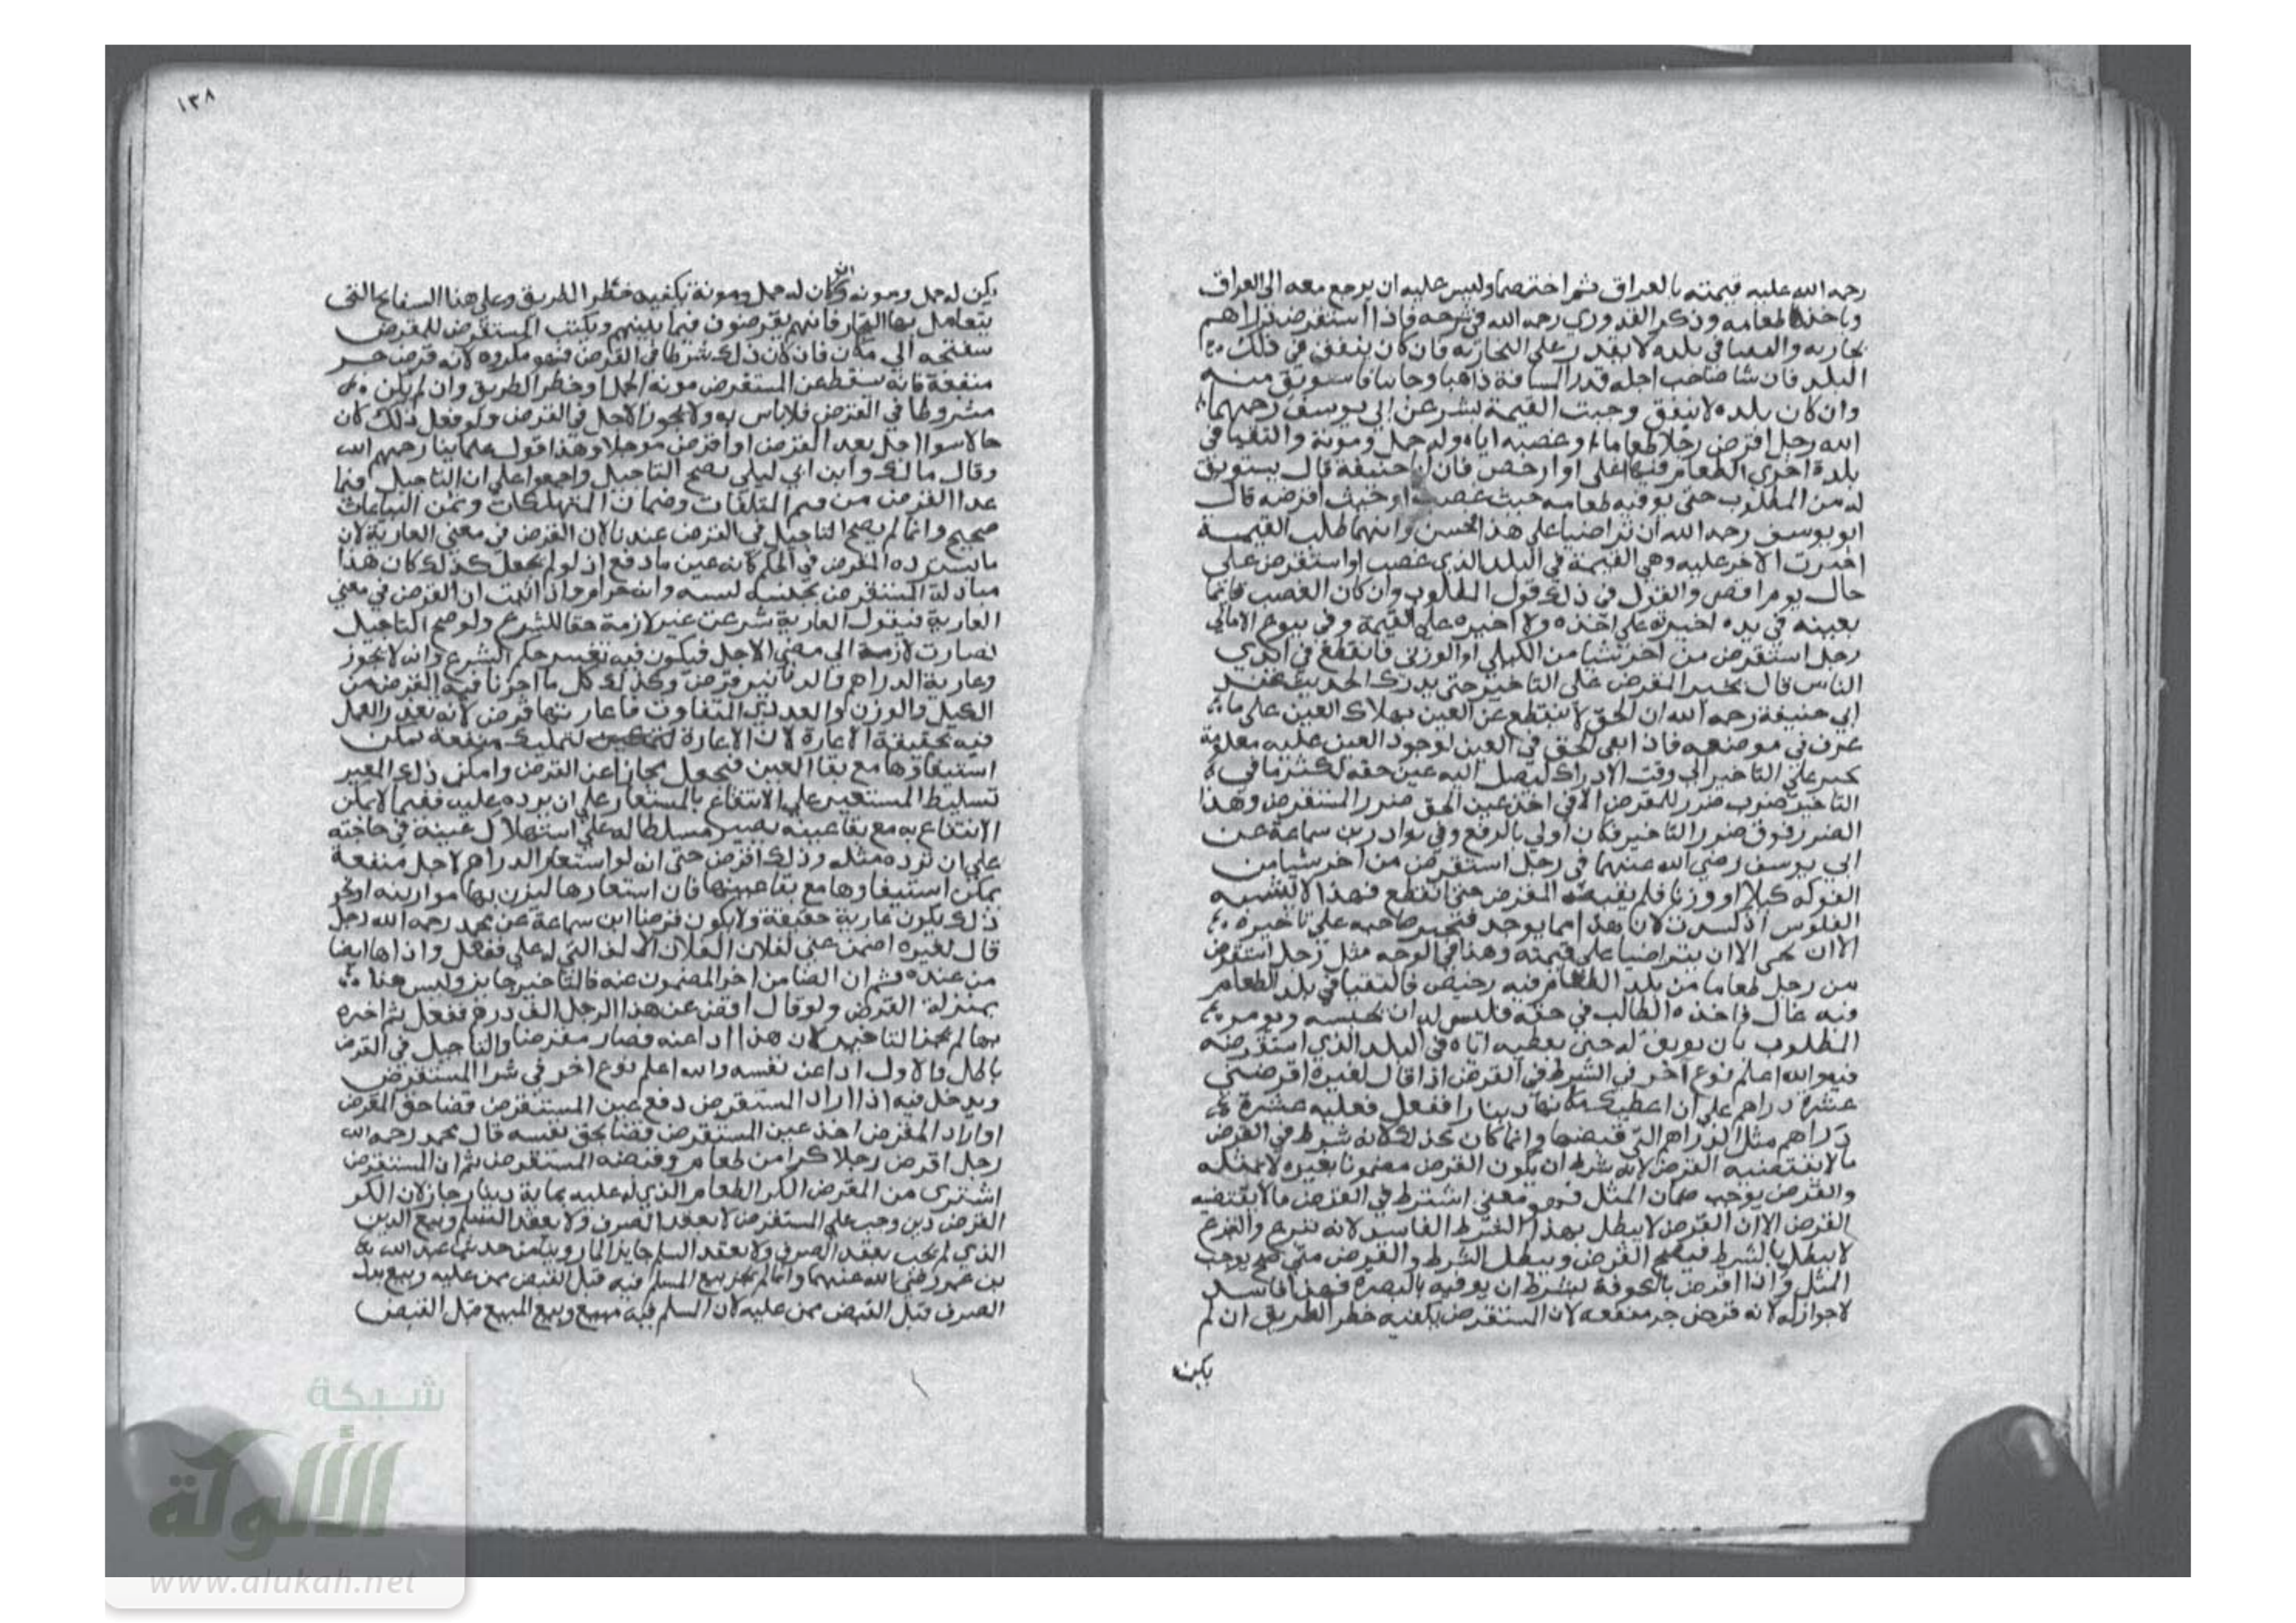 رحمه الله عليه قيمته بالعراق ثم اختصما وليس عليه ان يرجع معه الى العراق
وياخذ طعامه وذكر القدوري رحمه الله في شرحه فاذا استقرض دراهم
بخاريه والتقيا في بلده لا يقدر على البخاريه فان كان ينفق في ذلك
البلد فان شا صاحب اجله قدر المسافة ذاهبا وجاييا فاستوثق منه
وان كان بلده لا ينفق وجبت القيمة بشر عن ابي يوسف رحمهما
الله رجل اقرض رجلا طعاما او غصبه اياه وله حمل ومونة والتقيا في
بلدة اخرى الطعام فيها اغلى او ارخص فان ابا حنيفة قال يستوثق
له من المطلوب حتى يوفيه طعامه حيث غصب او حيث اقرضه قال
ابو يوسف رحمه الله ان تراضيا على هذا فحسن وايهما طلب القيمة
اجبرت الاخر عليه وهي القيمة في البلد الذي غصب او استقرض على
حال يوم اقضى والقول في ذلك قول المطلوب وان كان الغصب قائما
بعينه في يده اجبرته على اخذه ولا اجبره على القيمة وفي بيوع الامالي
رجل استقرض من اخر شيا من الكيلي او الوزني فانقطع في ايدي
الناس قال يجبر المقرض على التاخير حتى يدرك الحديث عند
ابي حنيفة رحمه الله ان الحق لا ينقطع عن العين بهلاك العين على ما
عرف في موضعه فاذا بقي الحق في العين لوجود العين عليه معلومة
يجبر على التاخير الى وقت الادراك ليصل اليه عين حقه لكثر ما في
التاخير ضرر للمقرض الا في اخذ عين الحق ضرر المستقرض وهذا
الضرر فوق ضرر التاخير فكان اولى بالدفع وفي نوادر بن سماعة عن
ابي يوسف رضي الله عنهما في رجل استقرض من اخر شيا من
الفوكه كيلا او وزنا فلم يقبضه المقرض حتى انقطع فهذا لا يشبه
الفلوس اذ كسدت لان هذا مما يوجد فيجبر صاحبه على تاخيره
الا ان يتراضيا على قيمته وهذا في الوجه مثل رجل استقرض
من رجل طعاما من بلد الطعام فيه رخيص فالتقيا في بلد الطعام
فيه غال فاخذه الطالب في حقه فليس له ان يحبسه ويومر
المطلوب بان يوثق له حتى يعطيه اياه في البلد الذي استقرضه
فيه والله اعلم نوع اخر في الشرط في القرض اذا قال لغيره اقرضني
عشرة دراهم على ان اعطيك مكانها دينارا ففعل فعليه عشرة
دراهم مثل الدراهم التي قبضها وانما كان كذلك لانه شرط في القرض
ما لا يقتضيه القرض لانه شرط ان يكون القرض مضمونا بغيره لا بمثله
والقرض يوجب ضمان المثل فهو معنى اشترط في القرض ما لا يقتضيه
القرض الا ان القرض لا يبطل بهذا الشرط الفاسد لانه تبرع والتبرع
لا يبطل بالشرط فيصح القرض ويبطل الشرط والقرض متى صح يوجب
المثل واذا اقرض بالكوفة بشرط ان يوفيه بالبصرة فهذا فاسد
لا جواز له لانه قرض جر منفعه لان المستقرض يكفيه خطر الطريق ان لم
يكن
١٣٨
يكن له حمل ومونه وان كان له حمل ومونة يكفيه خطر الطريق وعلى هذا السفاتج التي
يتعامل بها التجار فانهم يقرضون فيما بينهم ويكتب المستقرض للمقرض
سفتجه الى مكان فان كان ذلك شرطا في القرض فهو مكروه لانه قرض جر
منفعة فانه سقط عن المستقرض مونة الحمل وخطر الطريق وان لم يكن
مشروطا في القرض فلا باس به ولا يجوز الاجل في القرض ولو فعل ذلك كان
حالا سوا اجل بعد القرض او اقرض موجلا وهذا قول علماينا رحمهم الله
وقال مالك وابن ابي ليلى يصح التاجيل واجمعوا على ان التاجيل فيما
عدا القرض من قيم المتلفات وضمان المستهلكات وثمن البياعات
صحيح وانما لم يصح التاجيل في القرض عندنا لان القرض في معنى العارية لان
ما يسترده المقرض في الحكم كانه عين ما دفع اذ لو لم يجعل كذلك كان هذا
مبادلة المستقرض بجنسه نسيه وانه حرام واذا اثبت ان القرض في معنى
العارية فيقول العارية شرعت غير لازمة حقا للشرع ولو صح التاجيل
لصارت لازمة الى مضي الاجل فيكون فيه تغيير حكم الشرع وانه لا يجوز
وعارية الدراهم والدنانير قرض وكذلك كل ما اجزنا فيه القرض من
الكيل والوزن والعددي المتفاوت فاعارتها قرض لانه تعذر العمل
فيه بحقيقة الاعارة لان الاعارة لتمليك منفعة يمكن
استيفاؤها مع بقا العين فيجعل مجازا عن القرض وامكن ذلك المعير
تسليط المستعير على الانتفاع بالمستعار على ان يرده عليه ففيما لا يمكن
الانتفاع به مع بقا عينه يصير مسلطا له على استهلاك عينه في حاجته
على ان يرده مثله وذلك اقرض حتى انه لو استعار الدراهم لاجل منفعة
يمكن استيفاوها مع بقا عينها فان استعارها ليزن بها موازينه او نحو
ذلك يكون عارية حقيقة ولا يكون قرضا ابن سماعة عن محمد رحمه الله رجل
قال لغيره اضمن عني لفلان الفلان الالف التي له علي ففعل واداها ايضا
من عنده ثم ان الضامن اخر المضمون عنه فالتاخير جايز وليس هذا
بمنزلة القرض ولو قال اقض عن هذا الرجل الف درهم ففعل ثم اخره
بها لم يجز التاخير لان هذا ادا عنه فصار مقرضا والتاجيل في القرض
باطل والاول ادا عن نفسه والله اعلم نوع اخر في شرا المستقرض
ويدخل فيه اذا اراد المستقرض دفع عين المستقرض قضا حق المقرض
او اراد المقرض اخذ عين المستقرض قضا بحق نفسه قال محمد رحمه الله
رجل اقرض رجلا كرا من طعام وقبضه المستقرض ثم ان المستقرض
اشترى من المقرض الكر الطعام الذي له عليه بماية دينار جاز لان الكر
القرض دين وجب على المستقرض لا بعقد الصرف ولا بعقد السلم وبيع الدين
الذي لم يجب بعقد الصرف ولا بعقد السلم جايز لما روينا من حديث عبد الله
بن عمر رضي الله عنهما وانما لم يجز بيع المسلم فيه قبل القبض ممن عليه وبيع بدل
الصرف قبل القبض ممن عليه لان السلم فيه مبيع وبيع المبيع قبل القبض
شبكة
الألوكة
www.alukah.net